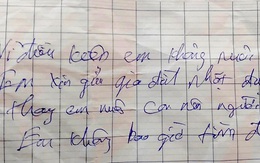 Vì điều kiện em không nuôi
Em xin gửi gia đình nhờ
thay em nuôi con nên người
Em không bao giờ tìm